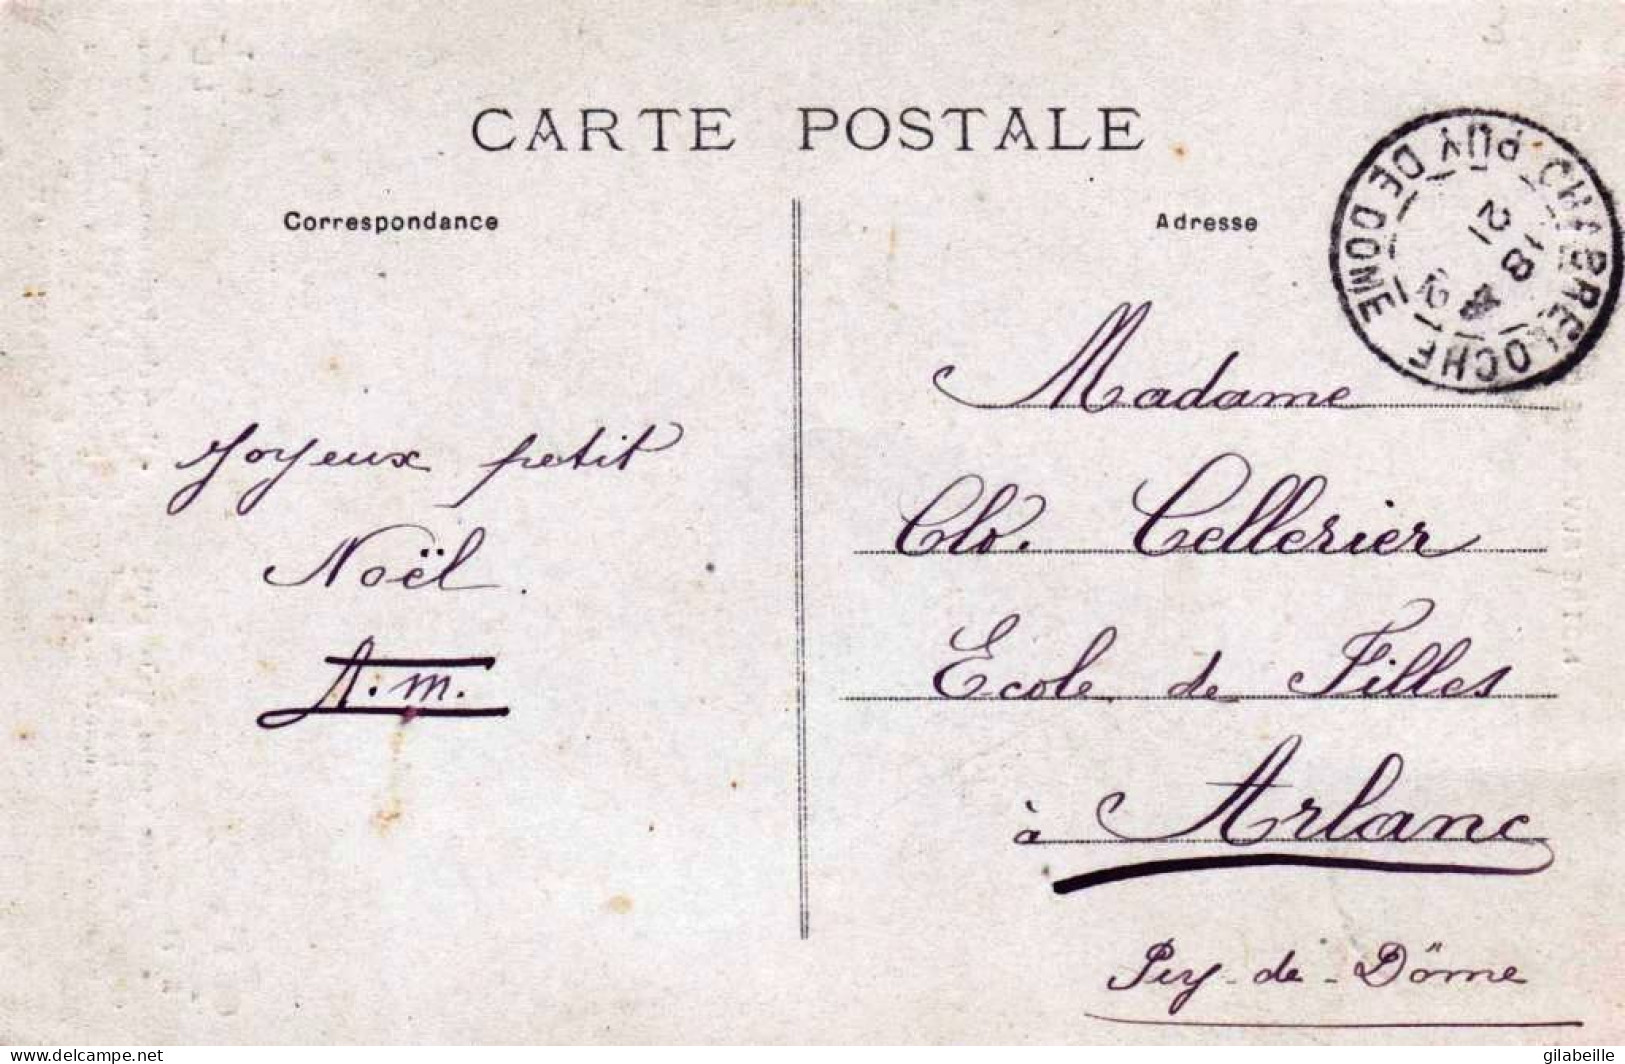 CARTE POSTALE
Correspondance
Adresse
CHABRELOCHE
PUY DE DOME
Joyeux petit
Noël.
A.m.
Madame
Clo. Cellerier
Ecole de Filles
à Arlanc
Puy-de-Dôme
www.delcampe.net
gilabeille